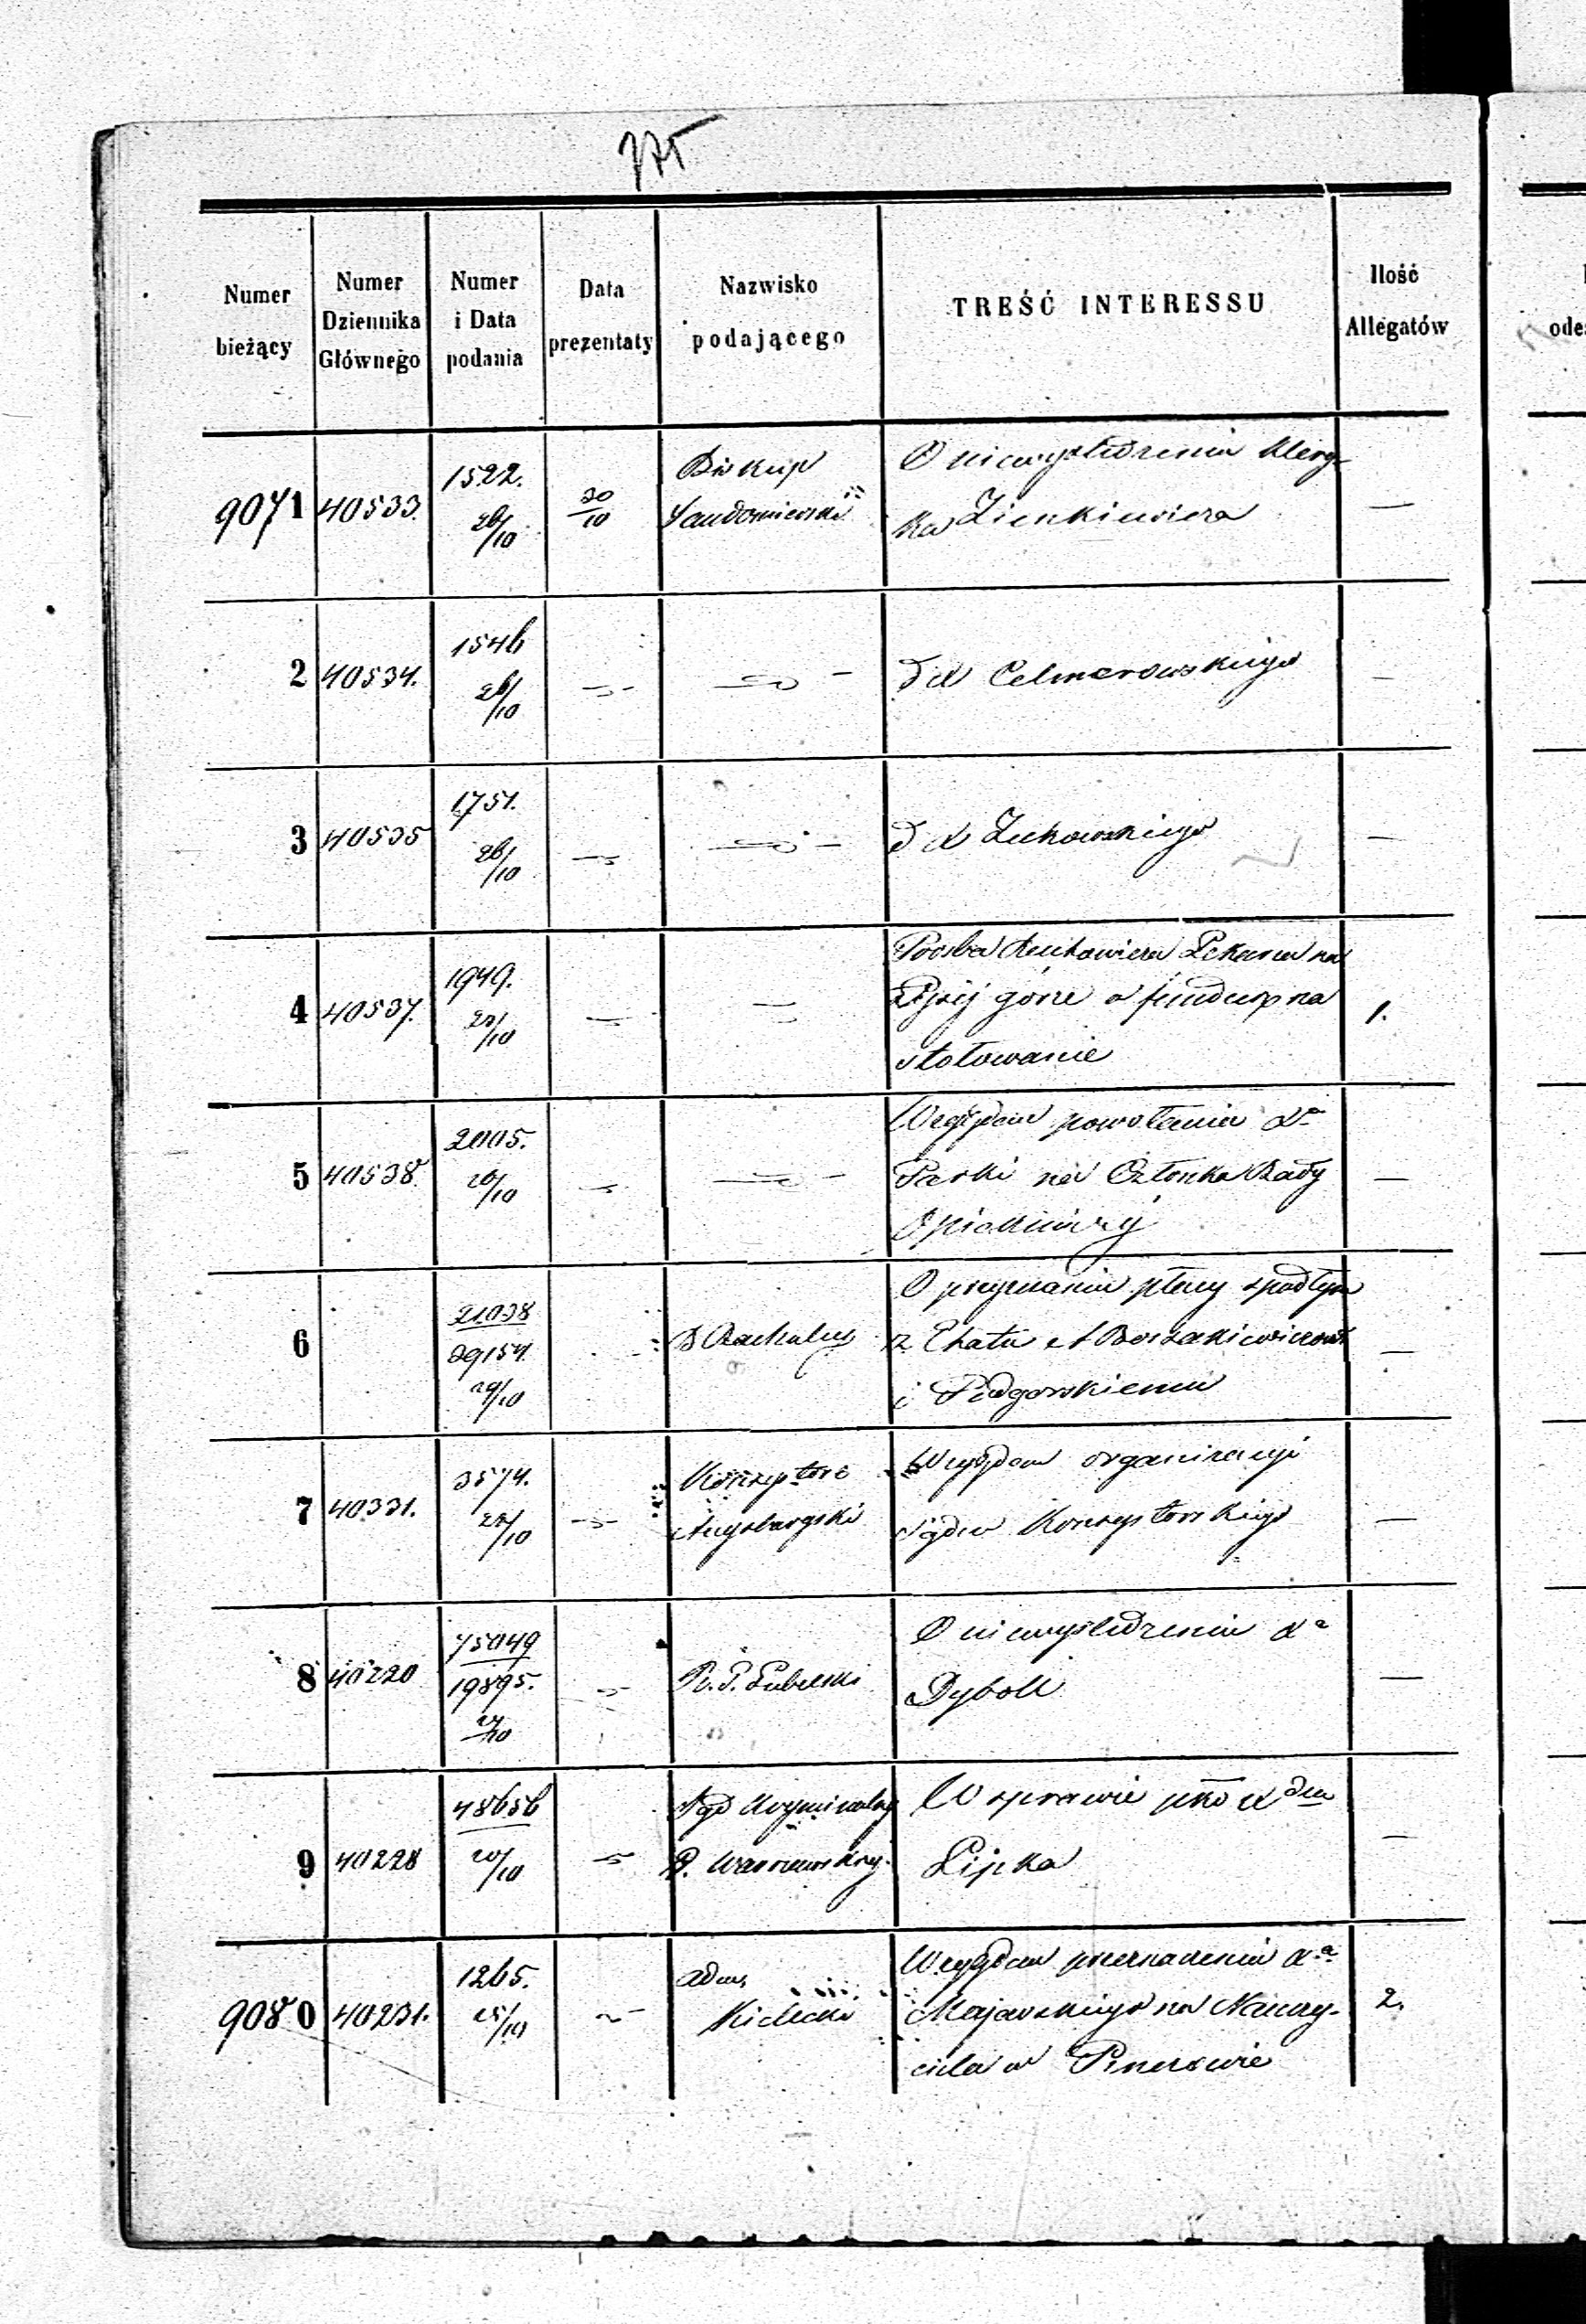 Numer bieżący
Numer Dziennika Głównego
Numer i Data podania
Data prezentaty
Nazwisko podającego
TREŚĆ INTERESSU
Ilość Allegatów
9071
40533.
1522.
26/10
30/10
Biskup
Sandomierski
O niewyśledzeniu Klery-
ka Zienkiewicza
—
2
40534.
1546
26/10
Celmerowskiego
—
3
40535
1751.
26/10
Żukowskiego
—
4
40537.
1949.
Prośba na
Łysej górze o fundusz na
stołowanie
1.
5
40538
2005.
26/10
Względem powołania Xa
na Członka Rady
Opiekuńczej
—
6
21038
39154.
29/10
O przyznaniu płacy spadłym
z Etatu
i Podgorskiemu
—
7
40331.
3574.
Konsystorz
Augsburgski
Względem organizacyi
Sądu Konsystorskiego
—
8
40220
75049
19895.
R. G. Lubelski
O niewyśledzeniu Xa
—
9
40228
48656
20/10
Sąd Kryminalny
G. Warszawskiej
W sprawie pko Xdzu
Lipka
—
9080
40231.
1265.
25/10
Adm.
Kielecki
Względem przeznaczenia Xa
Majewskiego na Nauczy-
ciela w Pinczowie
2.